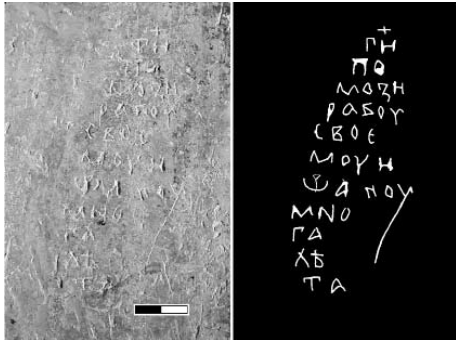 +
ГИ
ПО
МОЗИ
РАБОУ
СВОЕ
МОУ И
ѠАНОУ
МНО
ГА
ЛѢ
ТА